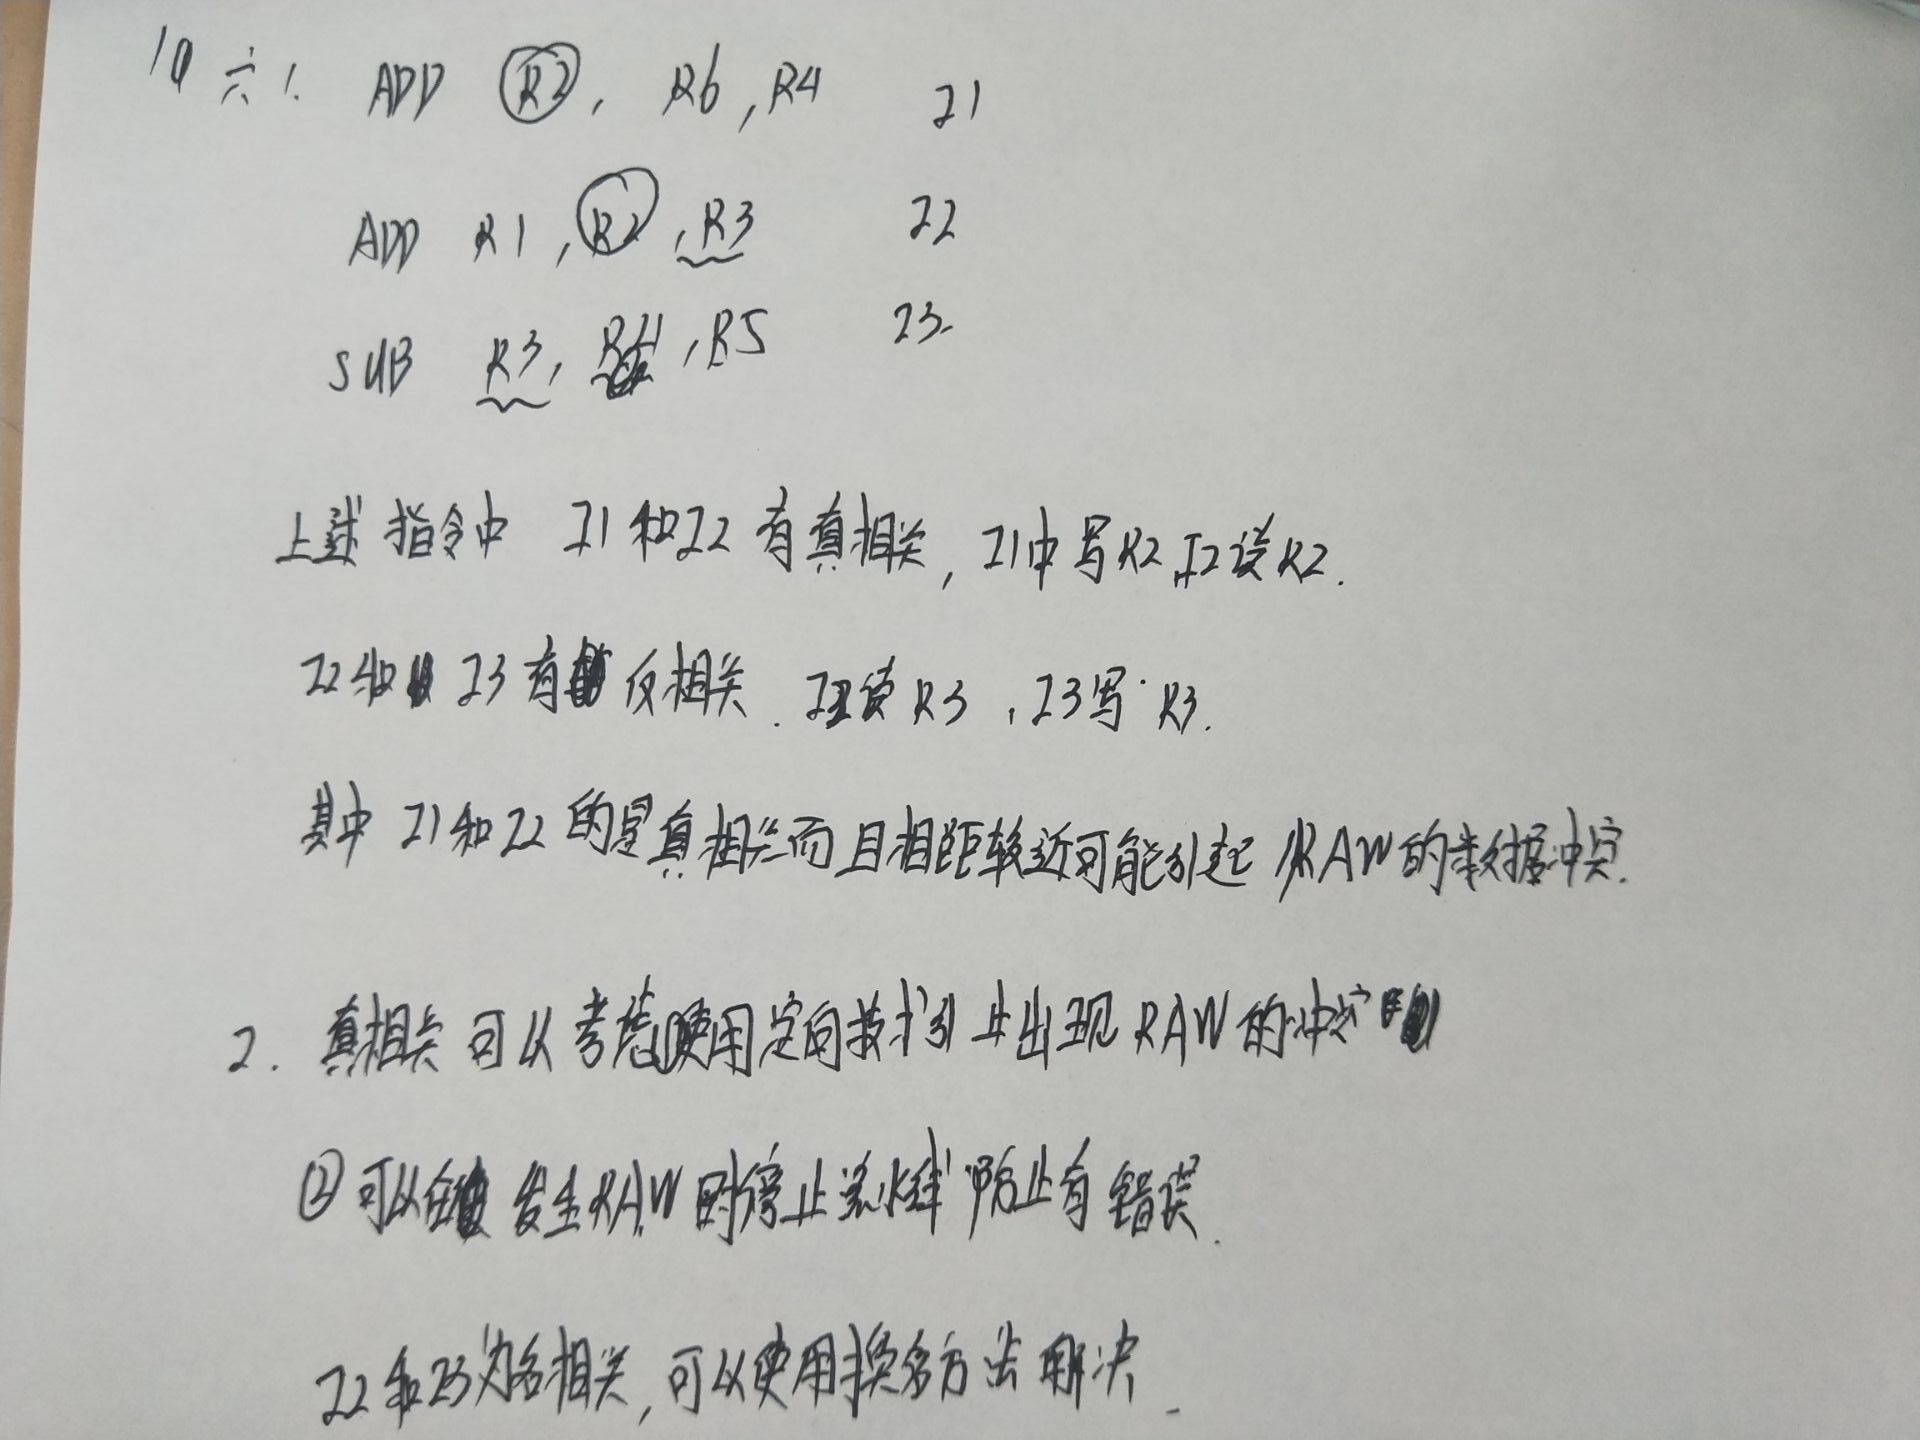 10 六1. ADD R2, R6, R4 I1
ADD R1, R2, R3 I2
SUB R3, R4, R5 I3
上述指令中 I1和I2有真相关, I1中写R2 I2读R2.
I2和I3有反相关. I2读R3, I3写R3.
其中I1和I2的是真相关而且相距较近可能引起RAW的数据冲突.
2. 真相关可以考虑使用定向技术引止出现RAW的冲突
②可以在发生RAW时停止流水线防止有错误.
I2和I3为名相关, 可以使用换名方法解决.